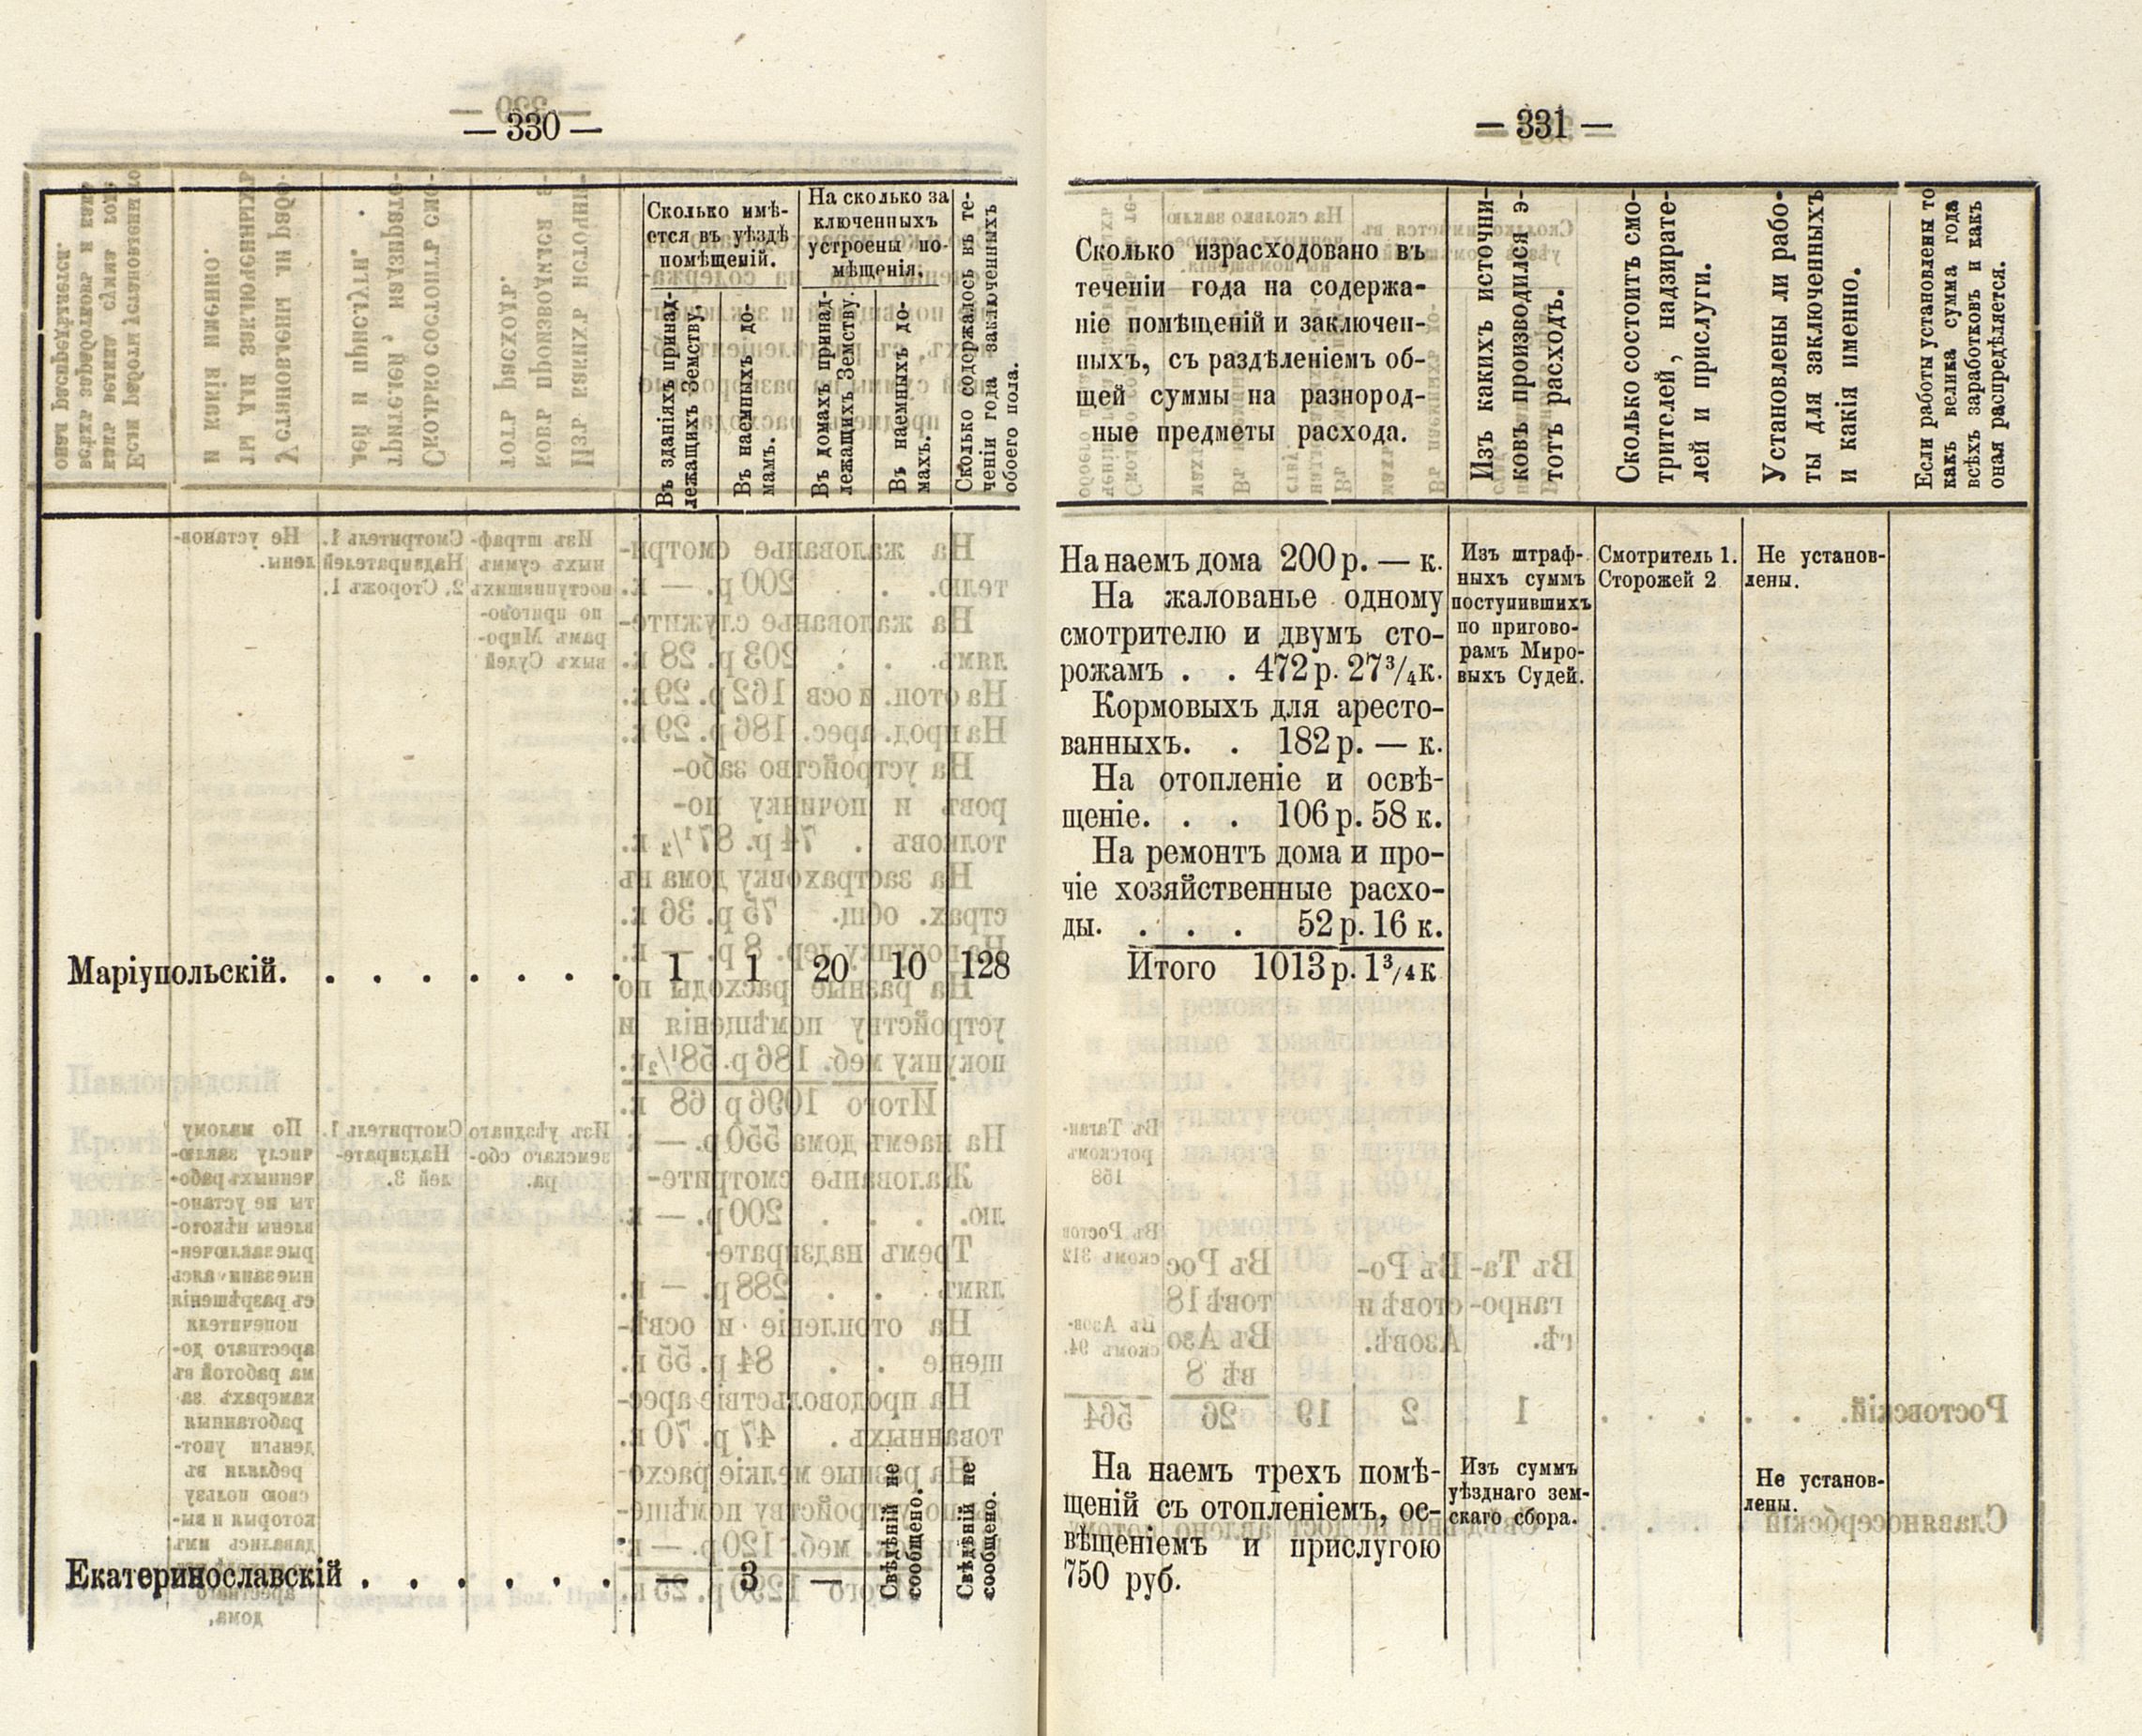 — 330 —
Сколько имѣ-
ется въ уѣздѣ
помѣщеній.
На сколько за
ключенныхъ
устроены по-
мѣщенія.
Въ зданіяхъ принад-
лежащихъ Земству.
Въ наемныхъ до-
мамъ.
Въ домахъ принад-
лежащихъ Земству.
Въ наемныхъ до-
махъ.
Сколько содержалось въ те-
ченіи года заключенныхъ
обоего пола.
Маріупольскій. . . . . . . . 1 1 20 10 128
Екатеринославскій . . . . . . — 3 —
Свѣдѣній не
сообщено.
Свѣдѣній не
сообщено.
— 331 —
Сколько израсходовано въ
теченіи года на содержа-
ніе помѣщеній и заключен-
ныхъ, съ раздѣленіемъ об-
щей суммы на разнород-
ные предметы расхода.
Изъ какихъ источни-
ковъ производился э-
тотъ расходъ.
Сколько состоитъ смо-
трителей, надзирате-
лей и прислуги.
Установлены ли рабо-
ты для заключенныхъ
и какія именно.
Если работы установлены то
какъ велика сумма года
всѣхъ заработковъ и какъ
оная распредѣляется.
На наемъ дома 200 р. — к.
На жалованье одному
смотрителю и двумъ сто-
рожамъ . . 472 р. 27³/₄ к.
Кормовыхъ для аресто-
ванныхъ. . 182 р. — к.
На отопленіе и освѣ-
щеніе. . . 106 р. 58 к.
На ремонтъ дома и про-
чіе хозяйственные расхо-
ды. . . . 52 р. 16 к.
Итого 1013 р. 1³/₄ к
Изъ штраф-
ныхъ суммъ
поступившихъ
по пригово-
рамъ Миро-
выхъ Судей.
Смотритель 1.
Сторожей 2
Не установ-
лены.
На наемъ трехъ помѣ-
щеній съ отопленіемъ, ос-
вѣщеніемъ и прислугою
750 руб.
Изъ суммъ
уѣзднаго зем-
скаго сбора.
Не установ-
лены.